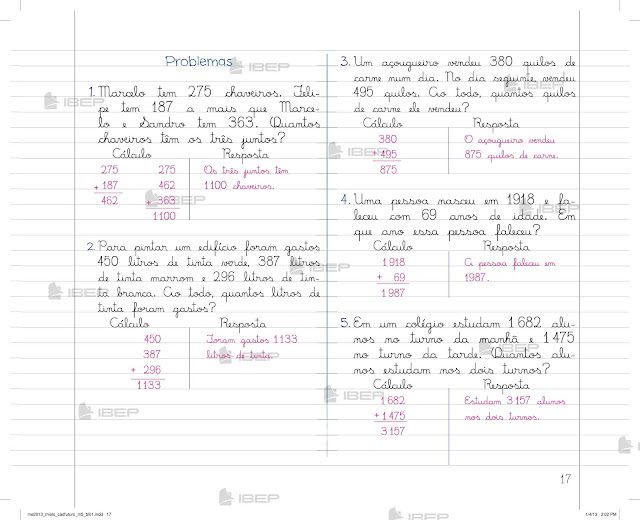 Problemas
1. Marcelo tem 275 chaveiros. Feli-
pe tem 187 a mais que Marce-
lo e Sandro tem 363. Quantos
chaveiros têm os três juntos?
Cálculo Resposta
275 275 Os três juntos têm
+ 187 462 1100 chaveiros.
462 + 363
1100
2. Para pintar um edifício foram gastos
450 litros de tinta verde, 387 litros
de tinta marrom e 296 litros de tin-
ta branca. Ao todo, quantos litros de
tinta foram gastos?
Cálculo Resposta
450 Foram gastos 1133
387 litros de tinta.
+ 296
1133
3. Um açougueiro vendeu 380 quilos de
carne num dia. No dia seguinte, vendeu
495 quilos. Ao todo, quantos quilos
de carne ele vendeu?
Cálculo Resposta
380 O açougueiro vendeu
+ 495 875 quilos de carne.
875
4. Uma pessoa nasceu em 1918 e fa-
leceu com 69 anos de idade. Em
que ano essa pessoa faleceu?
Cálculo Resposta
1918 A pessoa faleceu em
+ 69 1987.
1987
5. Em um colégio estudam 1682 alu-
nos no turno da manhã e 1475
no turno da tarde. Quantos alu-
nos estudam nos dois turnos?
Cálculo Resposta
1682 Estudam 3157 alunos
+ 1475 nos dois turnos.
3157
17
IBEP
IBEP
IBEP
IBEP
IBEP
IBEP
IBEP
IBEP
IBEP
IBEP
IBEP
IBEP
1/4/13 2:02 PM